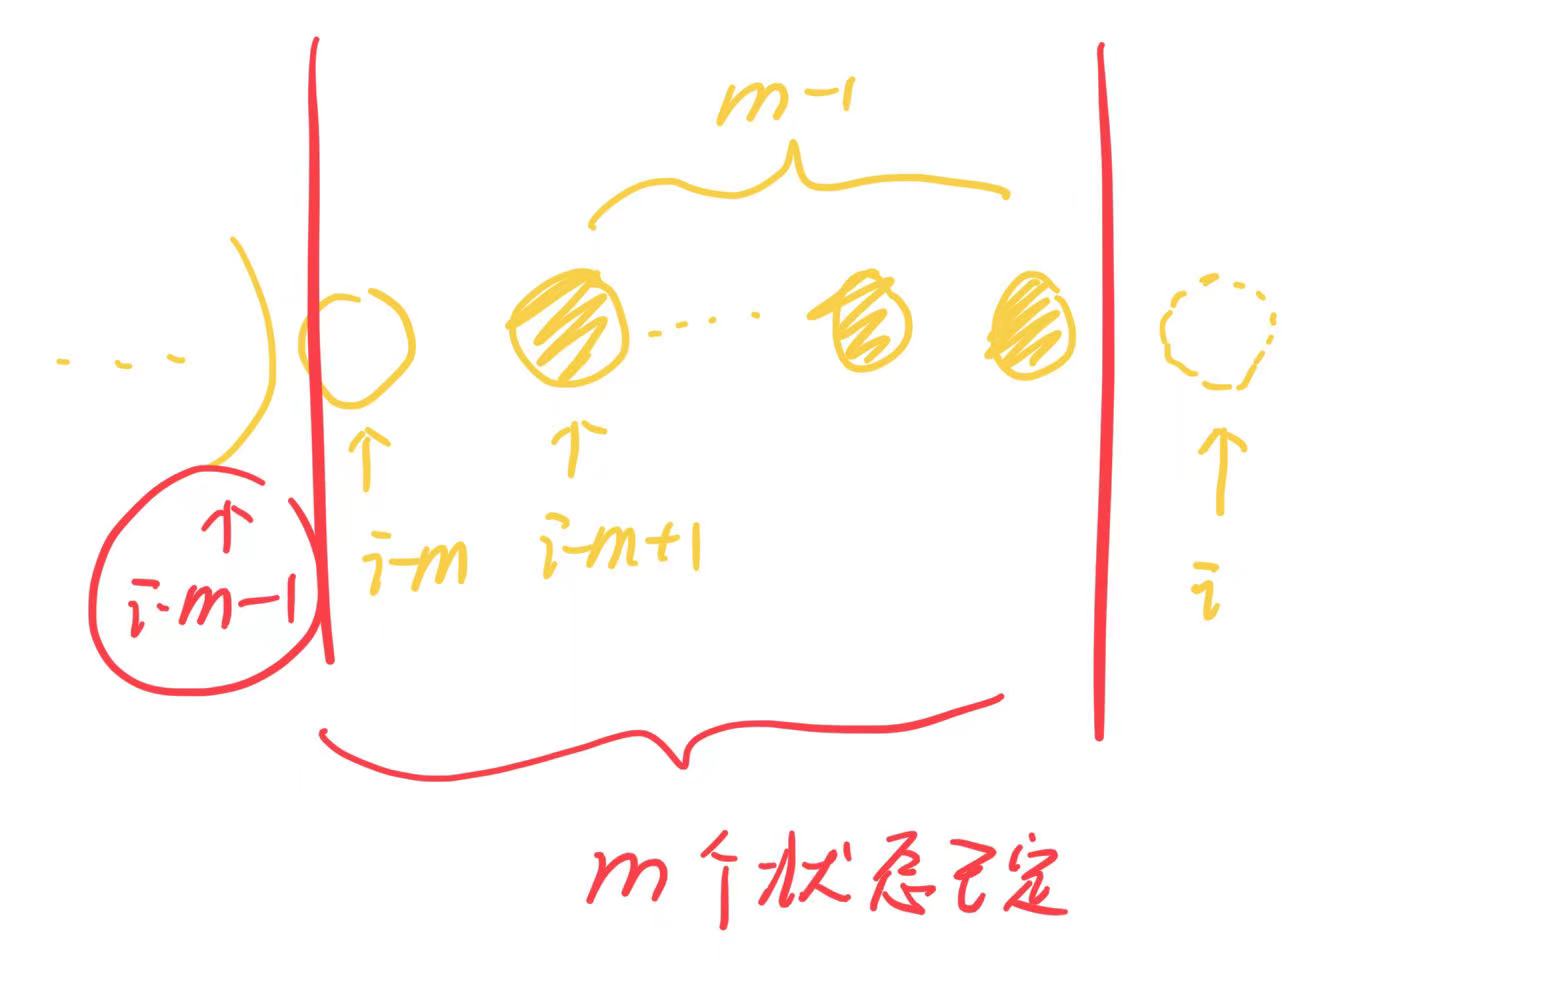 m-1
i-m
i-m+1
i-m-1
i
m个状态已定